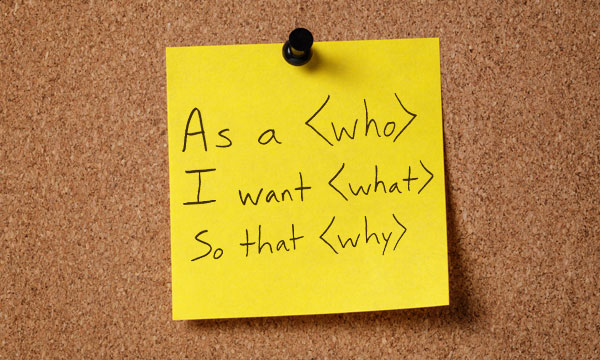 As a <who>
I want <what>
So that <why>